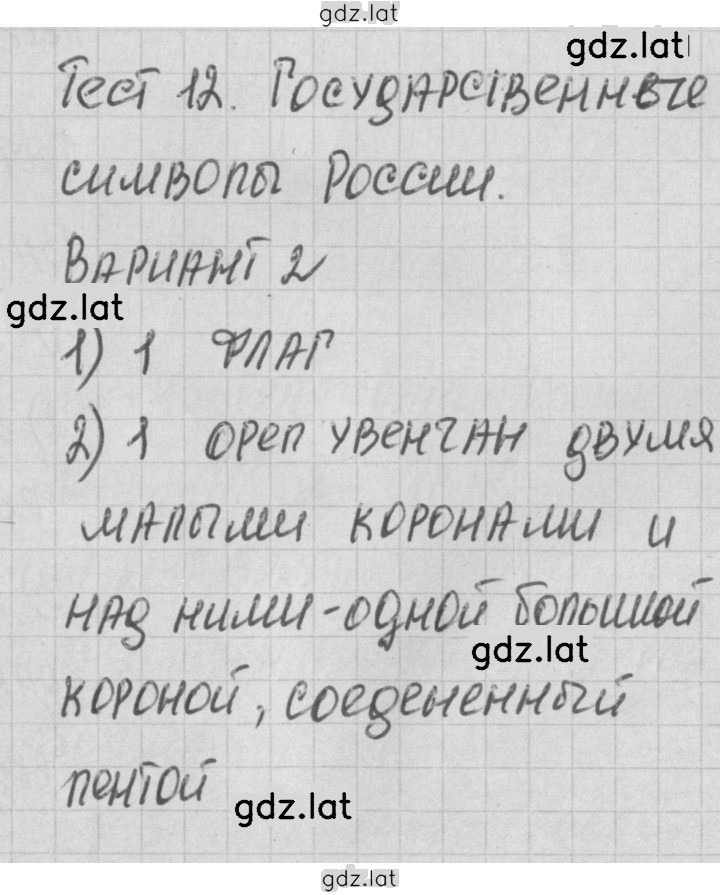 gdz.lat
gdz.lat
Тест 12. Государственные
символы России.
Вариант 2
gdz.lat
1) 1 флаг
2) 1 орел увенчан двумя
малыми коронами и
над ними - одной большой
gdz.lat
короной, соедененный
лентой
gdz.lat
gdz.lat